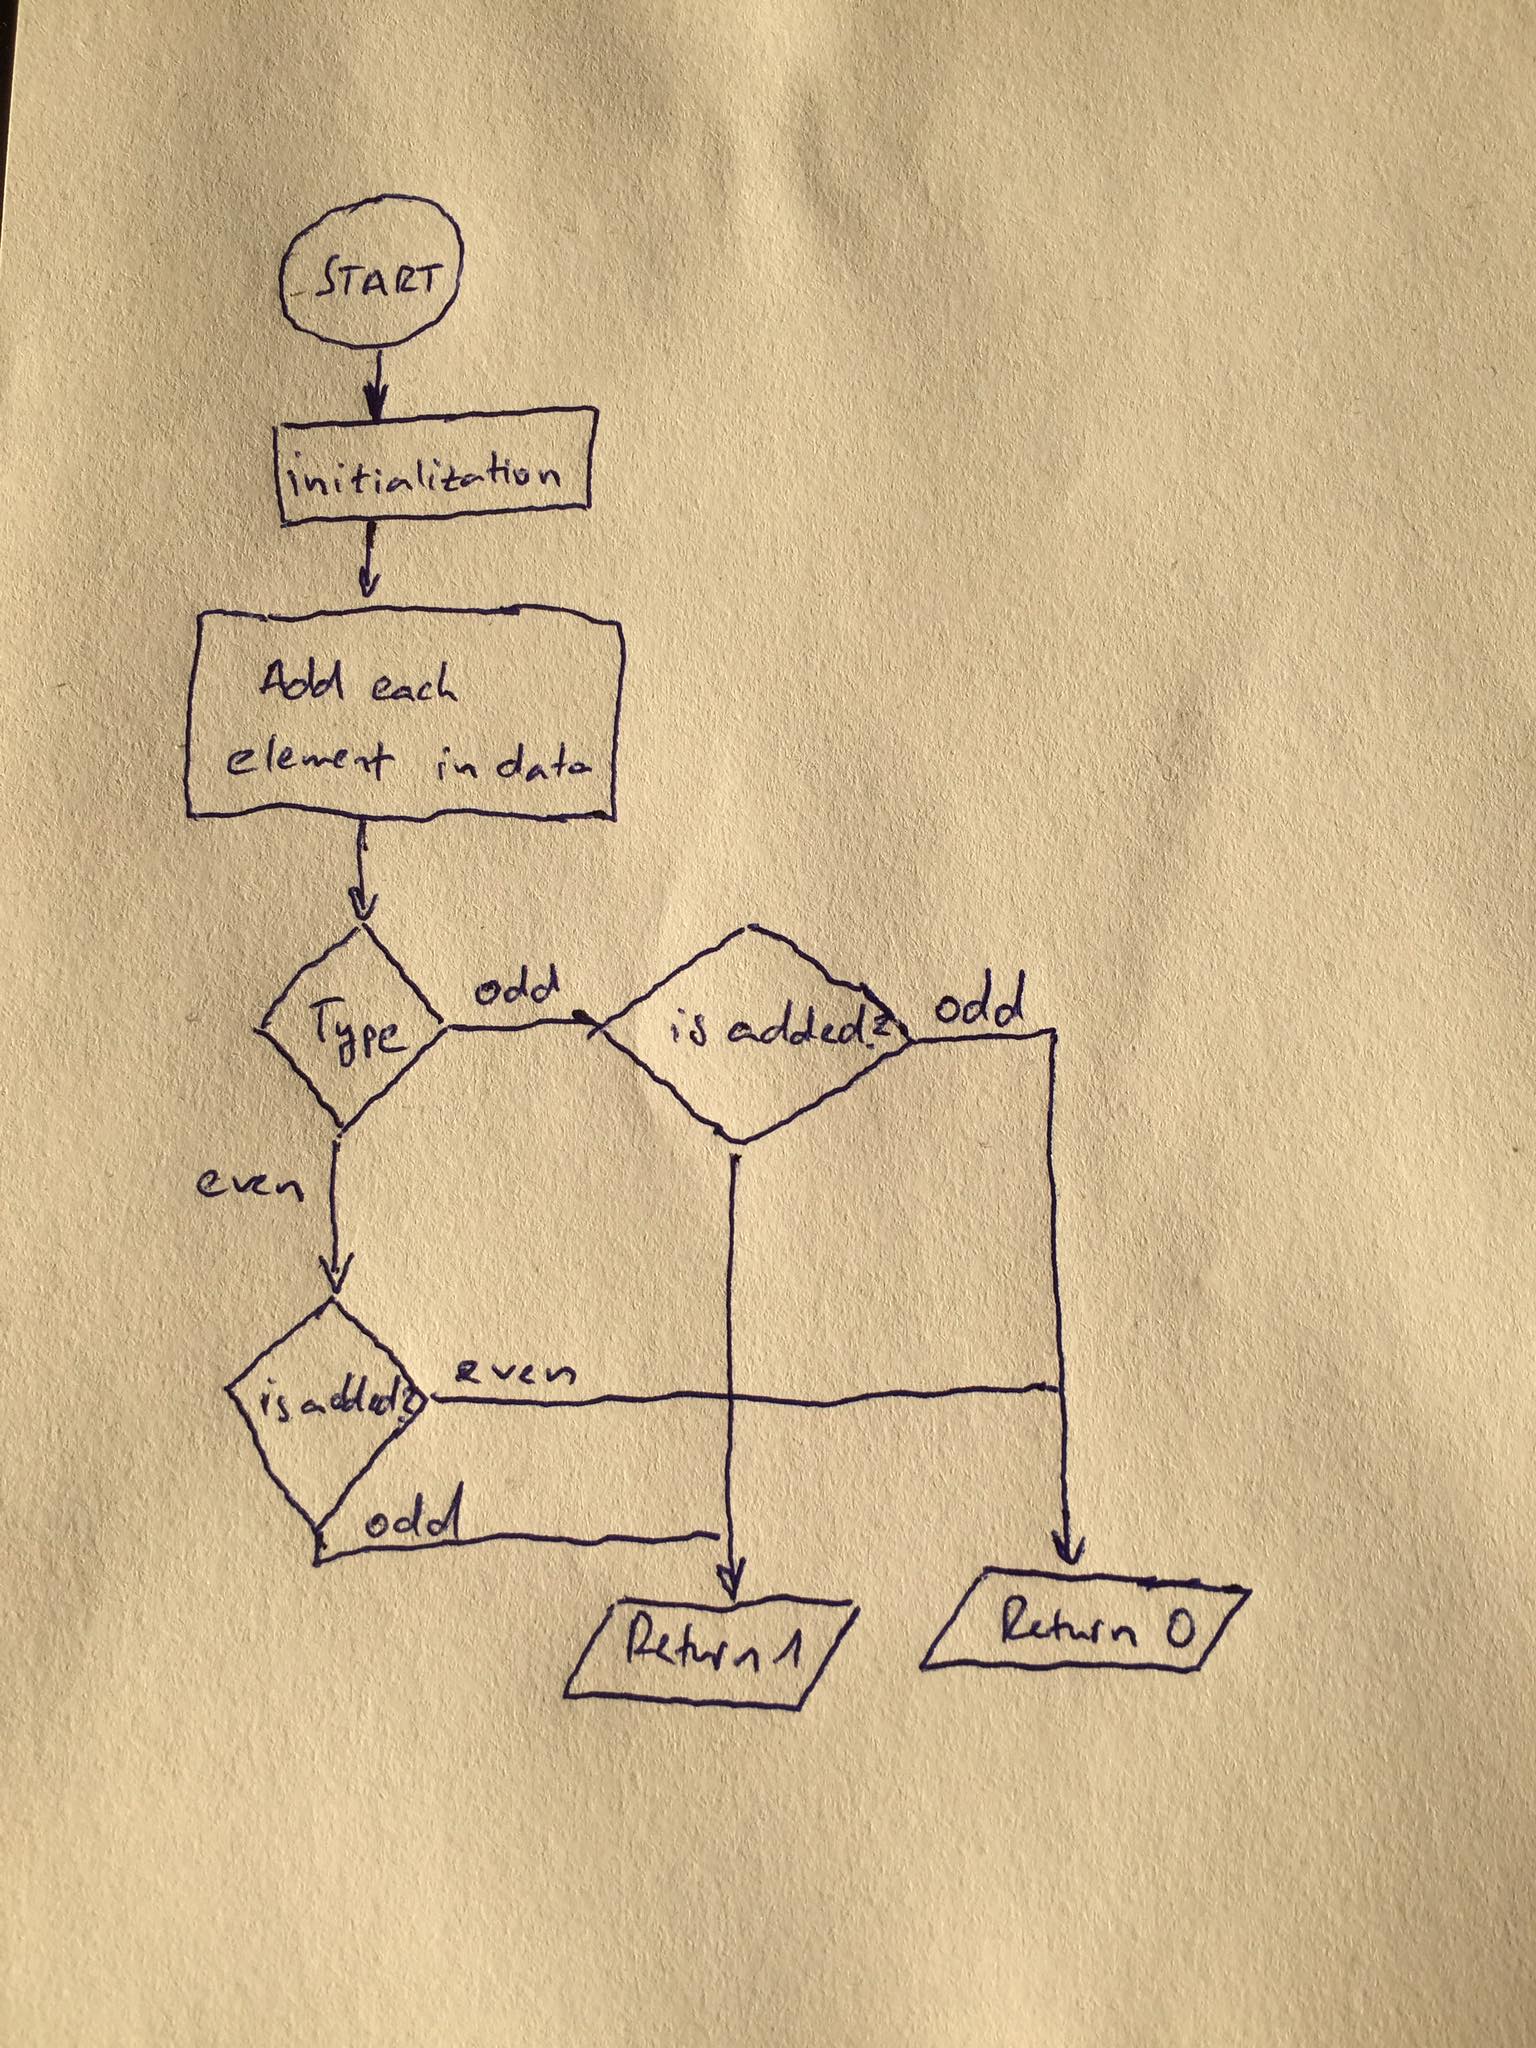 START
initialization
Add each
element in data
Type
odd
is added?
odd
even
is added?
even
odd
Return 1
Return 0